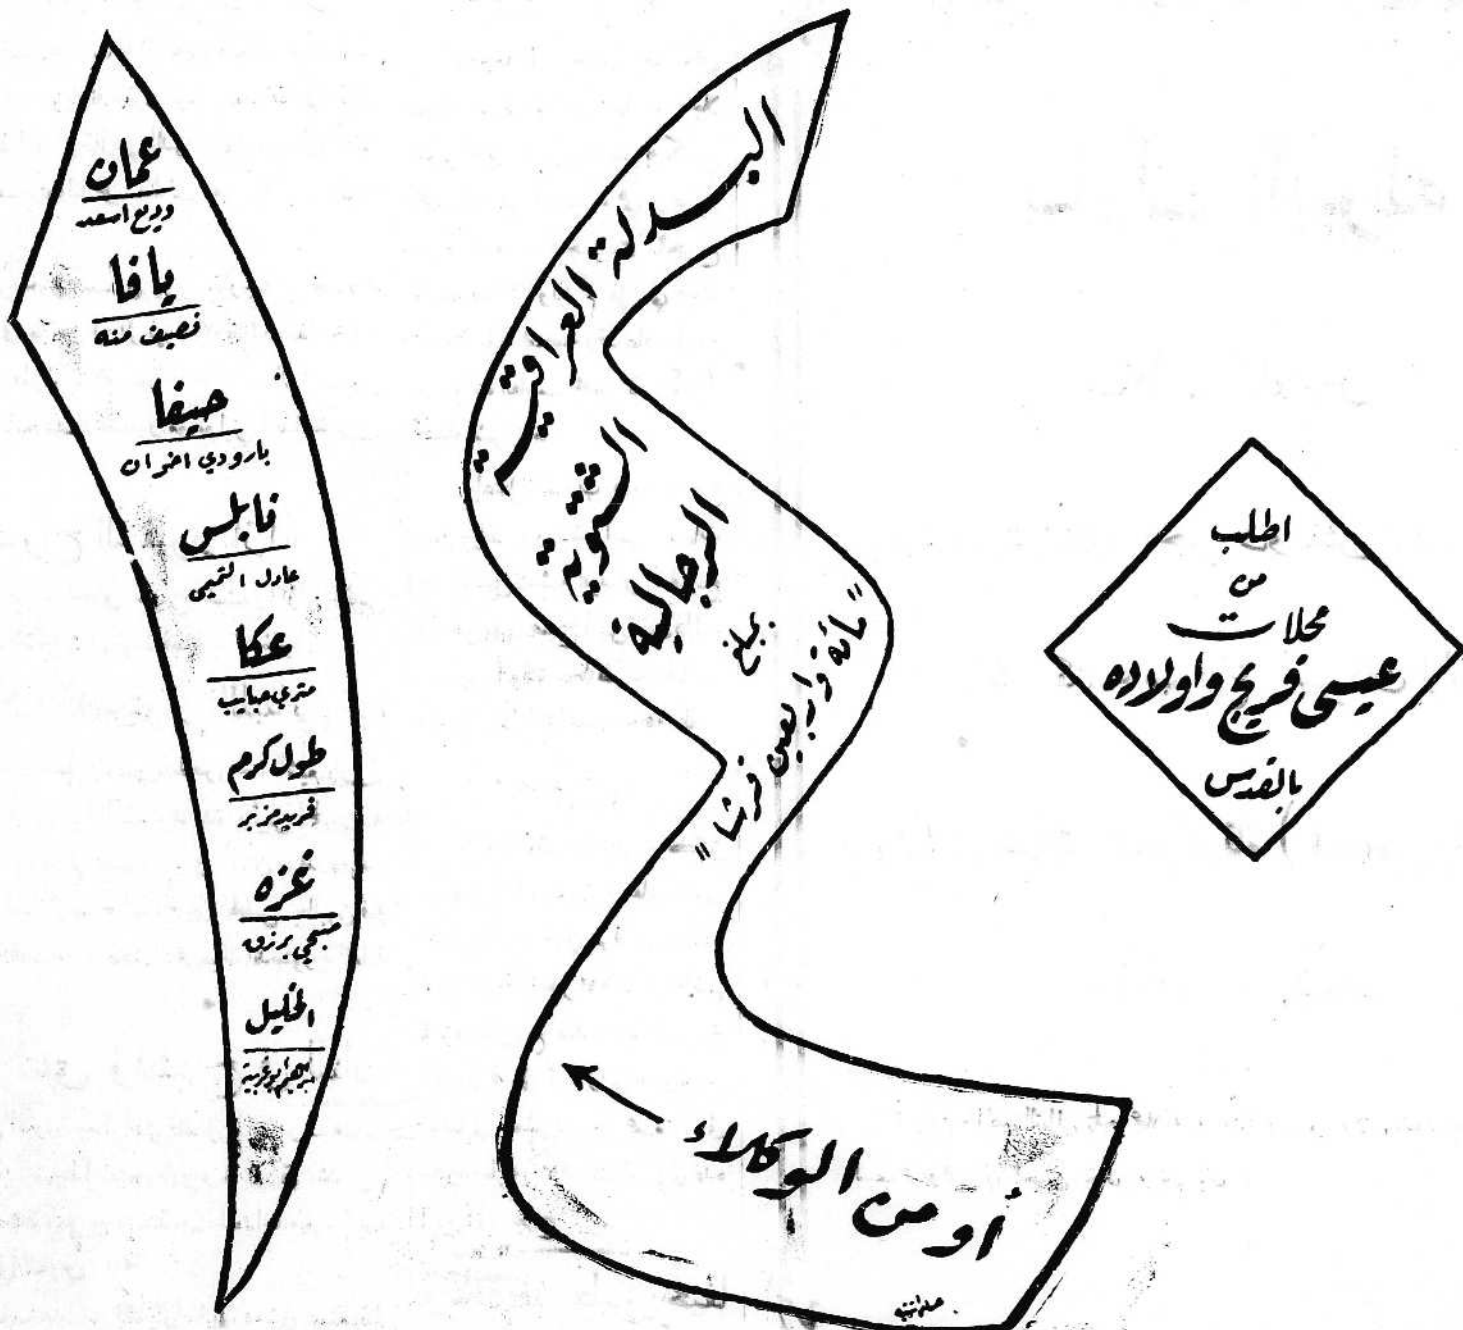 اطلب
من
محلات
عيسى فريج واولاده
بالقدس
البدلة العراقية
الشتوية
الرجالية
بمبلغ
"مائة واربعين قرشا"
أو من الوكلاء
عمان
وديع اسعد
يافا
نصيف منه
حيفا
بارودي اخوان
نابلس
عادل التميمي
عكا
متري حبايب
طول كرم
فريد مزبر
غزه
صبحي برزق
الخليل